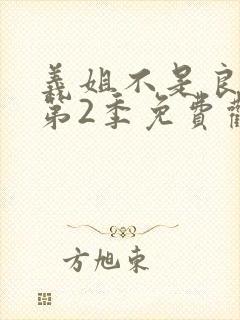 義姐不是良
第2季免費觀
方旭東